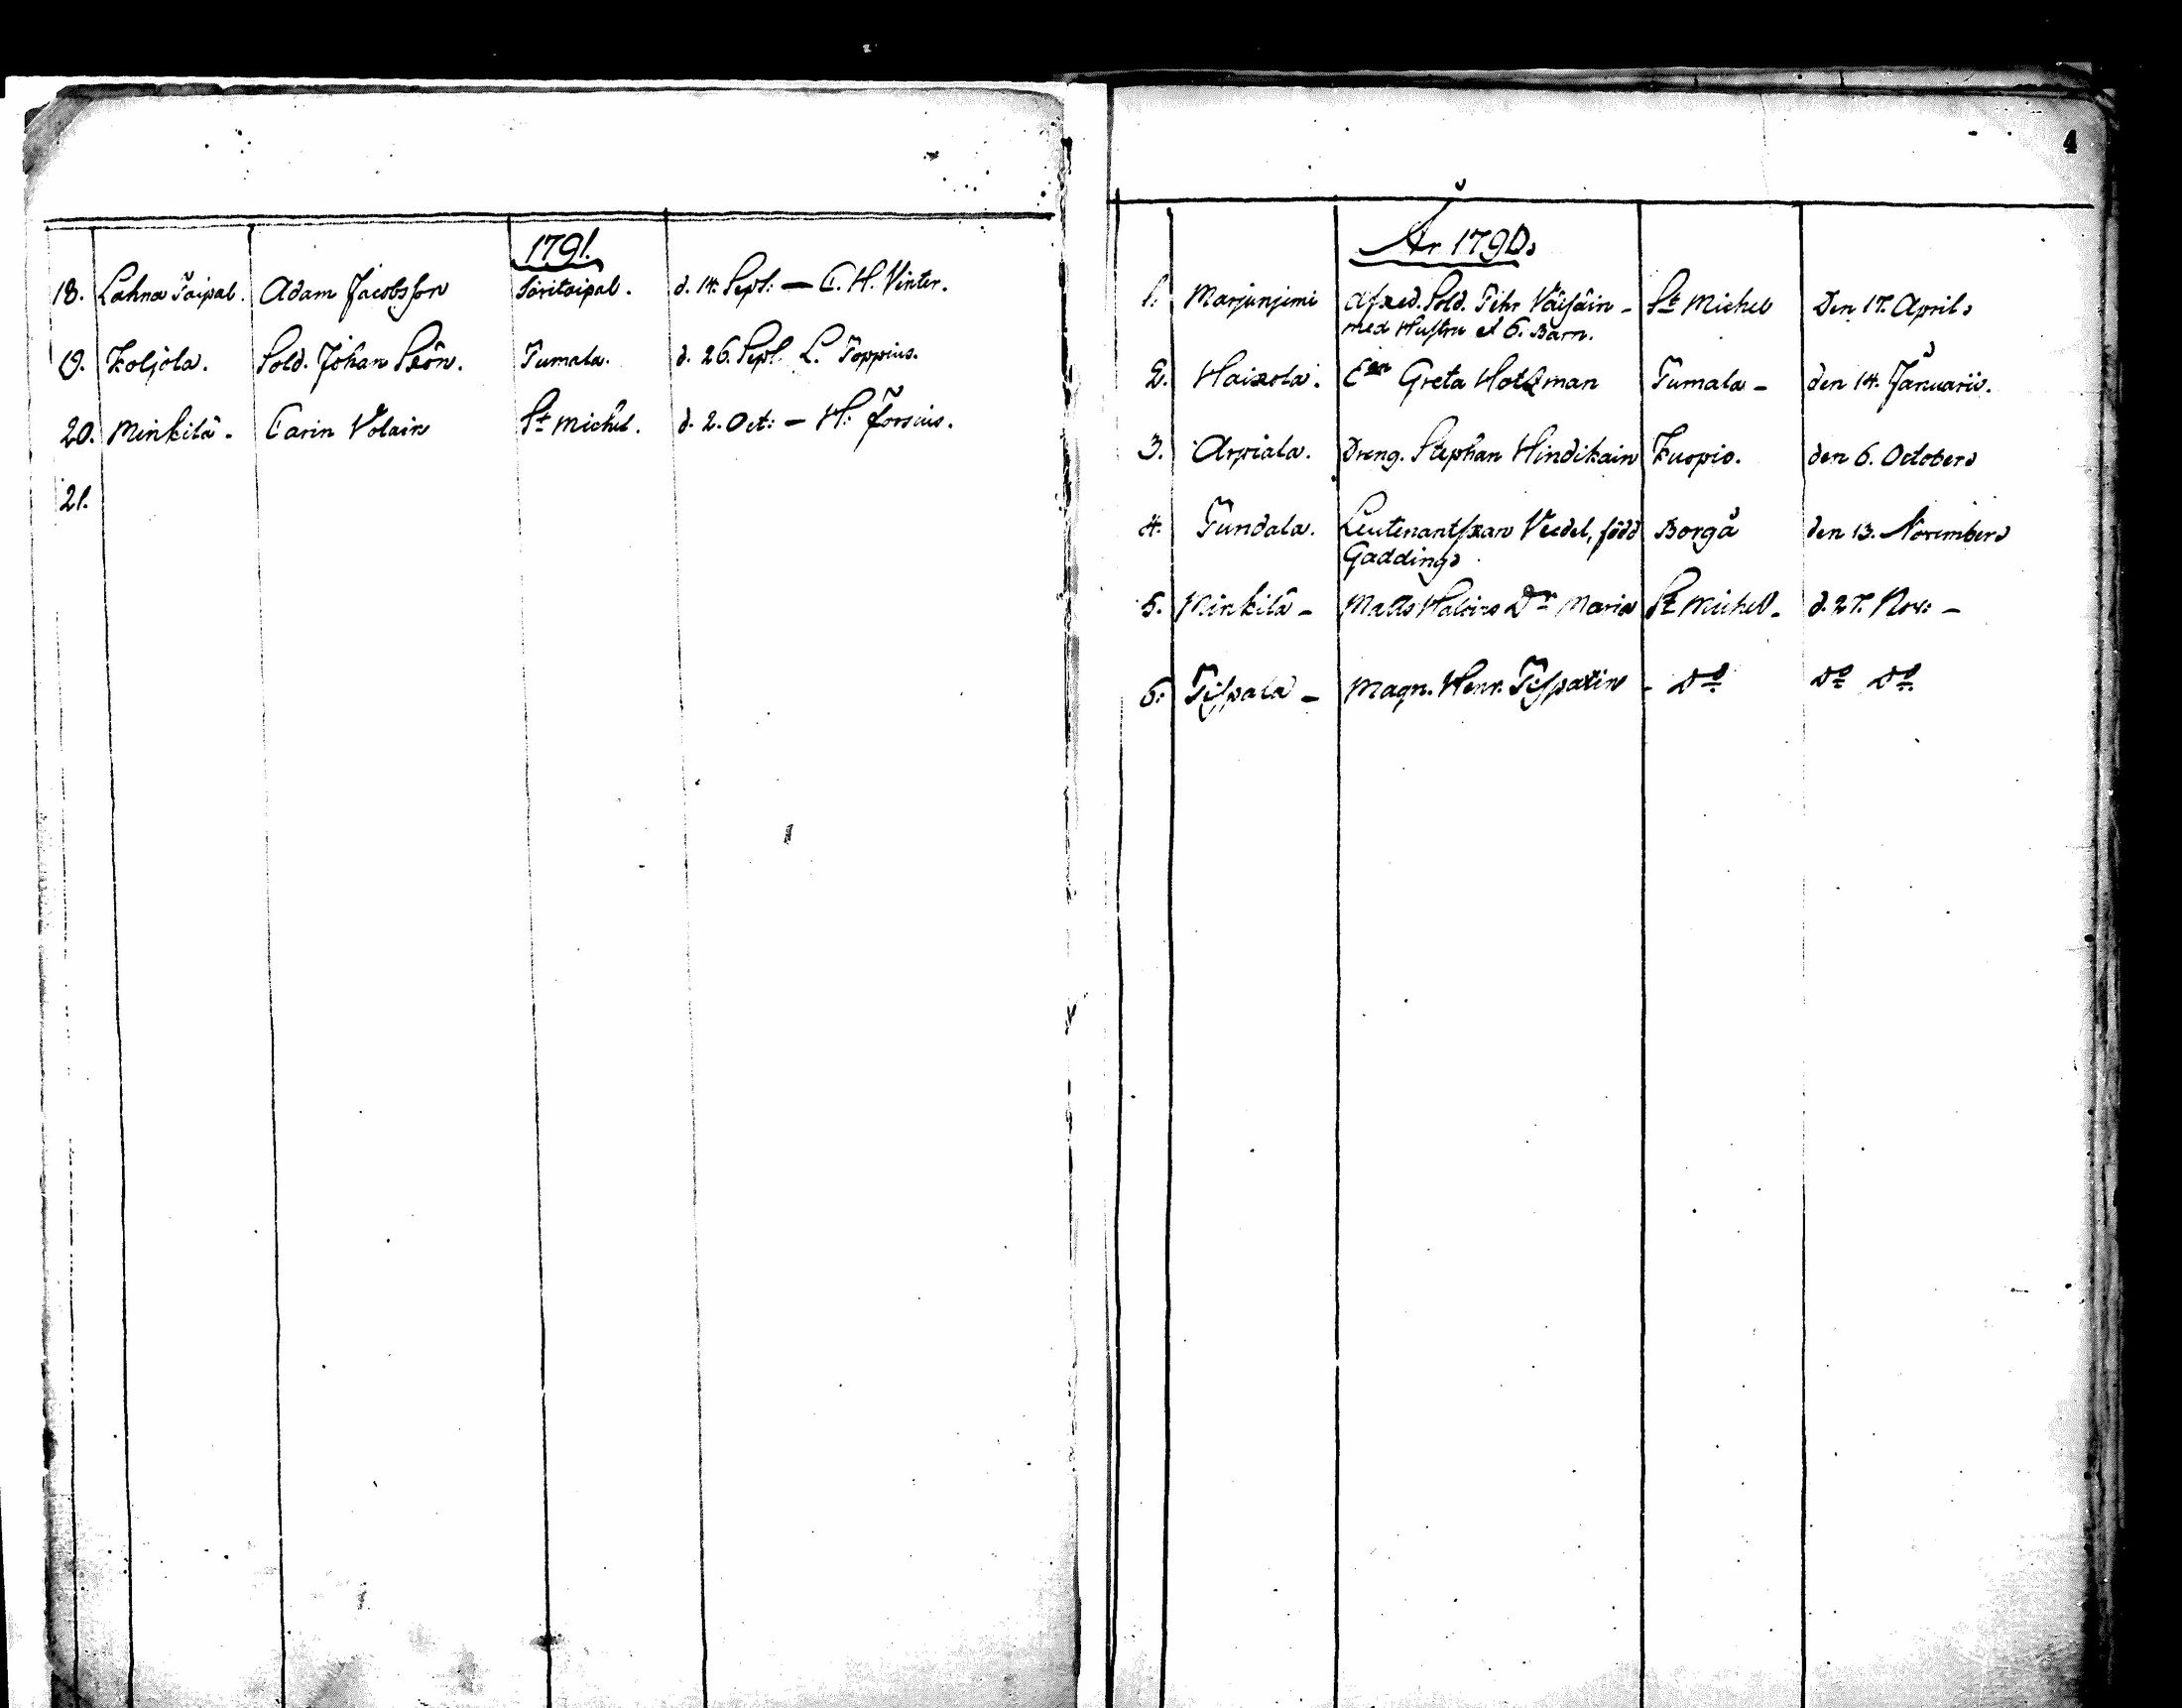 1791.
18. Lahna Taipal. Adam Jacobsson Savitaipal. d. 14. Sept: — C. H. Vinter.
19. Koljola. Sold. Johan Skön. Jumala. d. 26. Sept. L. Toppius.
20. Minkilä. Carin Volain St Michel. d. 2. Oct: — H: Forsius.
21.
4
År 1790.
1. Marjunjemi Afsked. Sold. Pehr Väisäin - St Michel Den 17. April
med Hustru et 6. Barn.
2. Haikola. Enn Greta Holtzman Jumala - den 14. Januarii.
3. Arpiala. Dreng. Stephan Hindikain Kuopio. den 6. October
4. Tundala. Leutenantskan Veedel, född Borgå den 13. November
Gadding
5. Minkilä - Matts Dr Maria St Michel - d. 27. Nov: -
6. Teispala - Magn. Henr. - Do Do Do